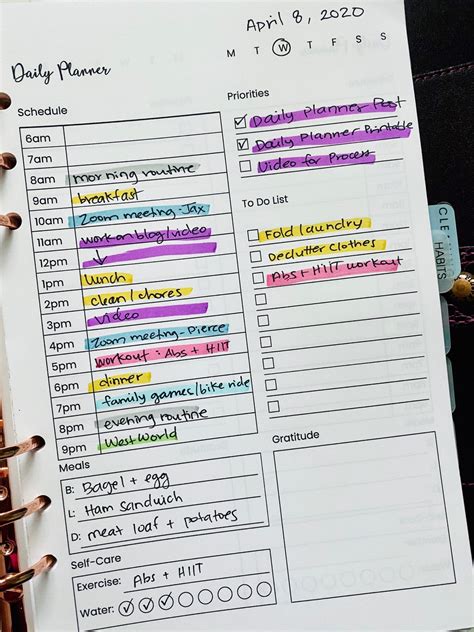 April 8, 2020
M T W T F S S
Daily Planner
Schedule
6am
7am
8am morning routine
9am breakfast
10am Zoom meeting - Jax
11am work on blog/video
12pm
1pm lunch
2pm clean/chores
3pm video
4pm Zoom meeting - Pierce
5pm workout : Abs + HIIT
6pm dinner
7pm family games/bike ride
8pm evening routine
9pm West World
Meals
B: Bagel + egg
L: Ham Sandwich
D: meat loaf + potatoes
Self-Care
Exercise: Abs + HIIT
Water:
Priorities
Daily Planner Post
Daily Planner Printable
Video for Process
To Do List
Fold laundry
Declutter Clothes
Abs + HIIT workout
Gratitude
HABITS